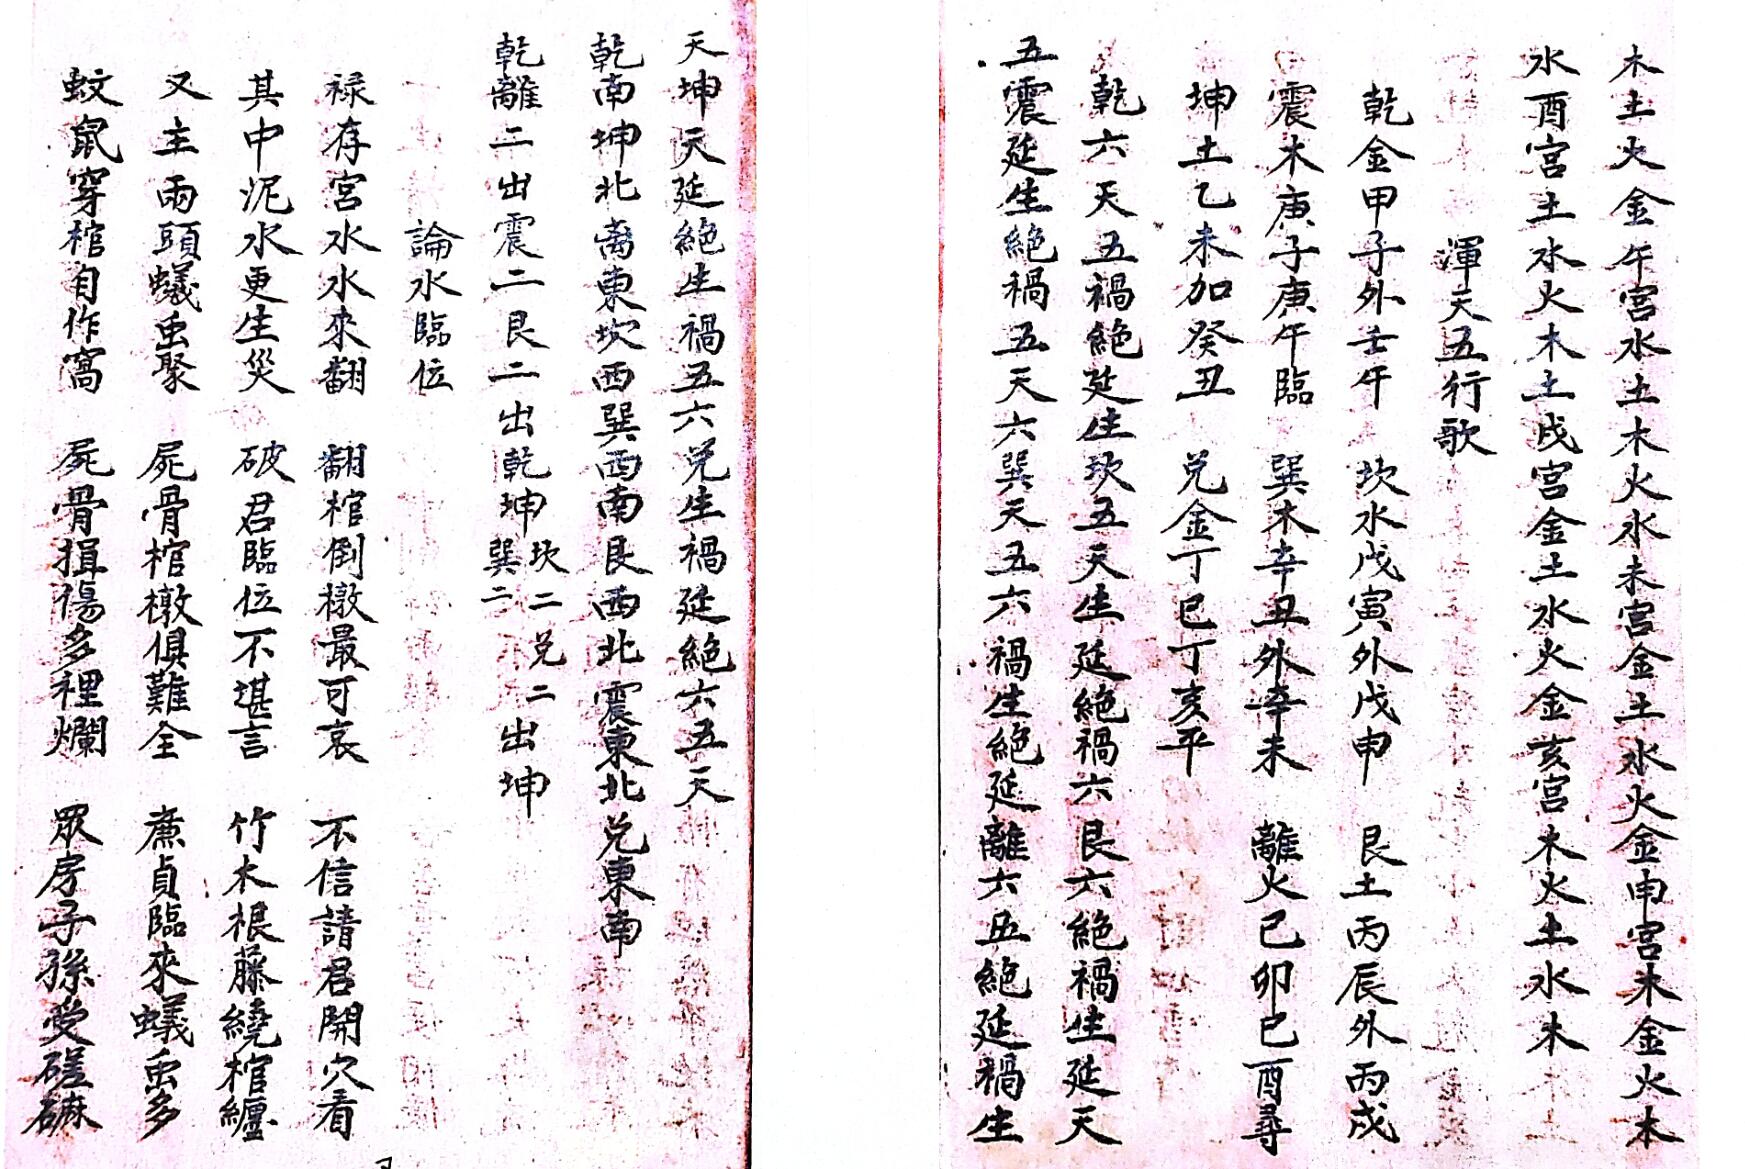 木土火金午宮水土木火水未宮金土水火金申宮木金火木
水酉宮土水火木土戌宮金土水火金亥宮木火土水木
渾天五行歌
乾金甲子外壬午　坎水戊寅外戊申　艮土丙辰外丙戌
震木庚子庚午臨　巽木辛丑外辛未　離火己卯己酉尋
坤土乙未加癸丑　兌金丁巳丁亥平
乾六天五禍絶延生坎五天生延絶禍六艮六絶禍生延天
五震延生絶禍五天六巽天五六禍生絶延離六五絶延禍生
天坤天延絶生禍五六兌生禍延絶六五天
乾南坤北离東坎西巽西南艮西北震東北兌東南
乾離二出震二艮二出乾坤坎二兌二出坤
巽二
論水臨位
禄存宮水水來翻　翻棺倒槨最可哀　不信請君開穴看
其中泥水更生災　破君臨位不堪言　竹木根藤繞棺纏
又主兩頭蟻虫聚　屍骨棺槨俱難全　亷貞臨來蟻虫多
蚊鼠穿棺自作窩　屍骨損傷多裡爛　眾房子孫受磋